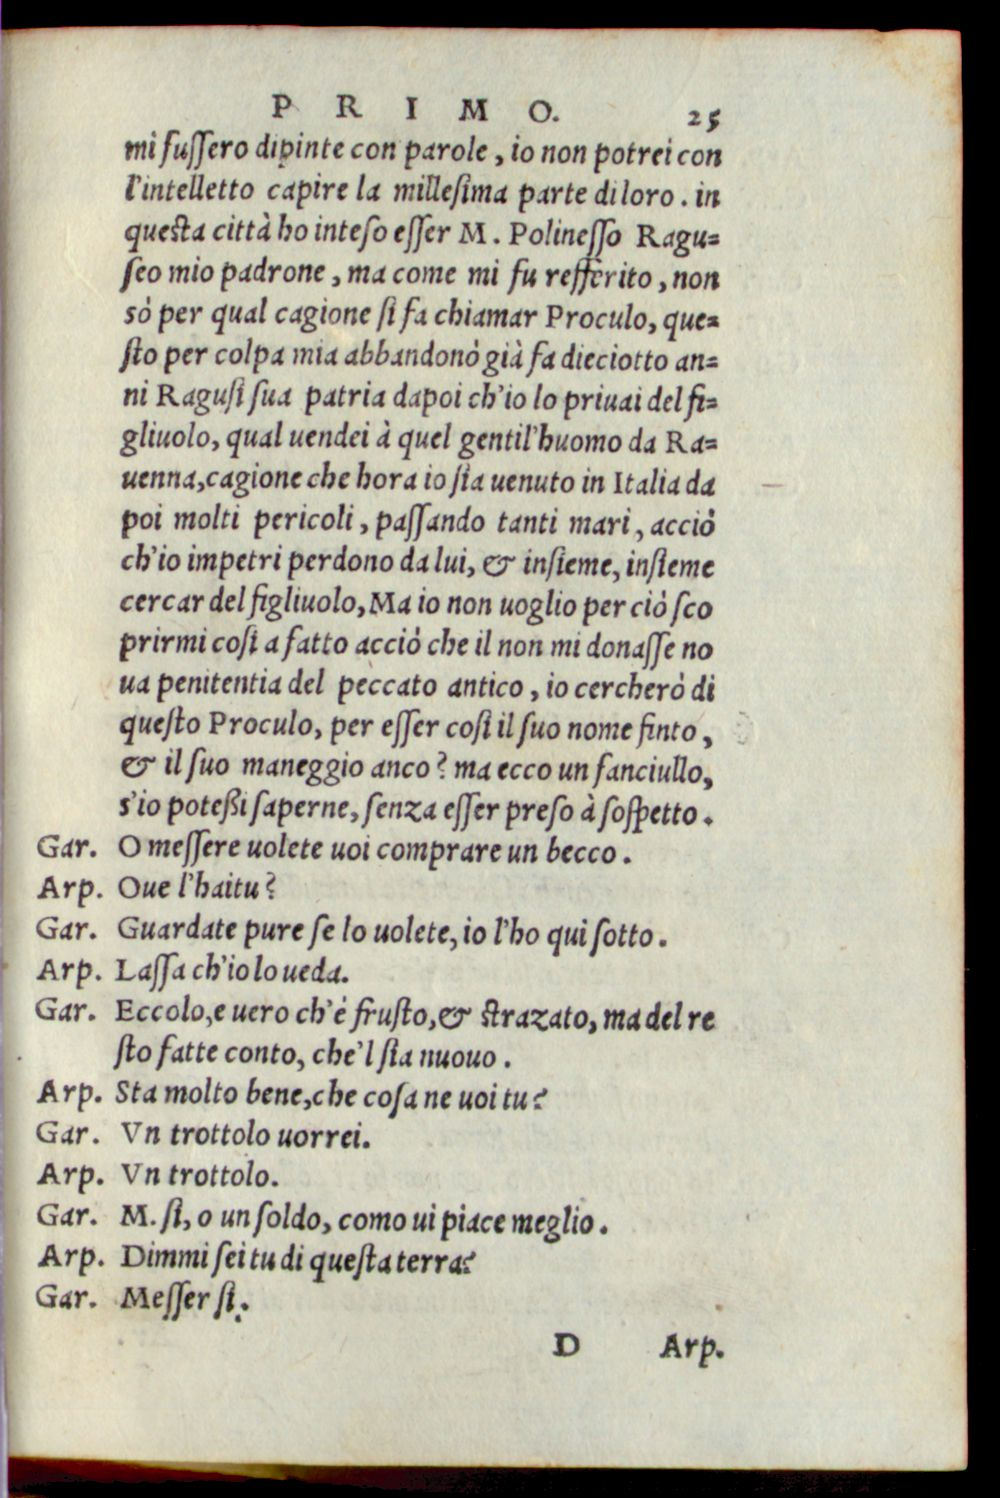 P R I M O. 25
mi fuſſero dipinte con parole, io non potrei con
l'intelletto capire la milleſima parte di loro. in
queſta città ho inteſo eſſer M. Polineſſo Ragu=
ſeo mio padrone, ma come mi fu refferito, non
sò per qual cagione ſi fa chiamar Proculo, que=
ſto per colpa mia abbandonò già fa dieciotto an=
ni Raguſi ſua patria dapoi ch'io lo priuai del fi=
gliuolo, qual uendei à quel gentil'huomo da Ra=
uenna, cagione che hora io ſia uenuto in Italia da
poi molti pericoli, paſſando tanti mari, acciò
ch'io impetri perdono da lui, & inſieme, inſieme
cercar del figliuolo, Ma io non uoglio per ciò ſco
prirmi coſi a fatto acciò che il non mi donaſſe no
ua penitentia del peccato antico, io cercherò di
queſto Proculo, per eſſer coſi il ſuo nome finto,
& il ſuo maneggio anco? ma ecco un fanciullo,
s'io poteßi ſaperne, ſenza eſſer preſo à ſoſpetto.
Gar. O meſſere uolete uoi comprare un becco.
Arp. Oue l'haitu?
Gar. Guardate pure ſe lo uolete, io l'ho qui ſotto.
Arp. Laſſa ch'io lo ueda.
Gar. Eccolo, e uero ch'è fruſto, & ſtrazato, ma del re
ſto fatte conto, che'l ſia nuouo.
Arp. Sta molto bene, che coſa ne uoi tu?
Gar. Vn trottolo uorrei.
Arp. Vn trottolo.
Gar. M. ſi, o un ſoldo, como ui piace meglio.
Arp. Dimmi ſei tu di queſta terra?
Gar. Meſſer ſi.
D Arp.